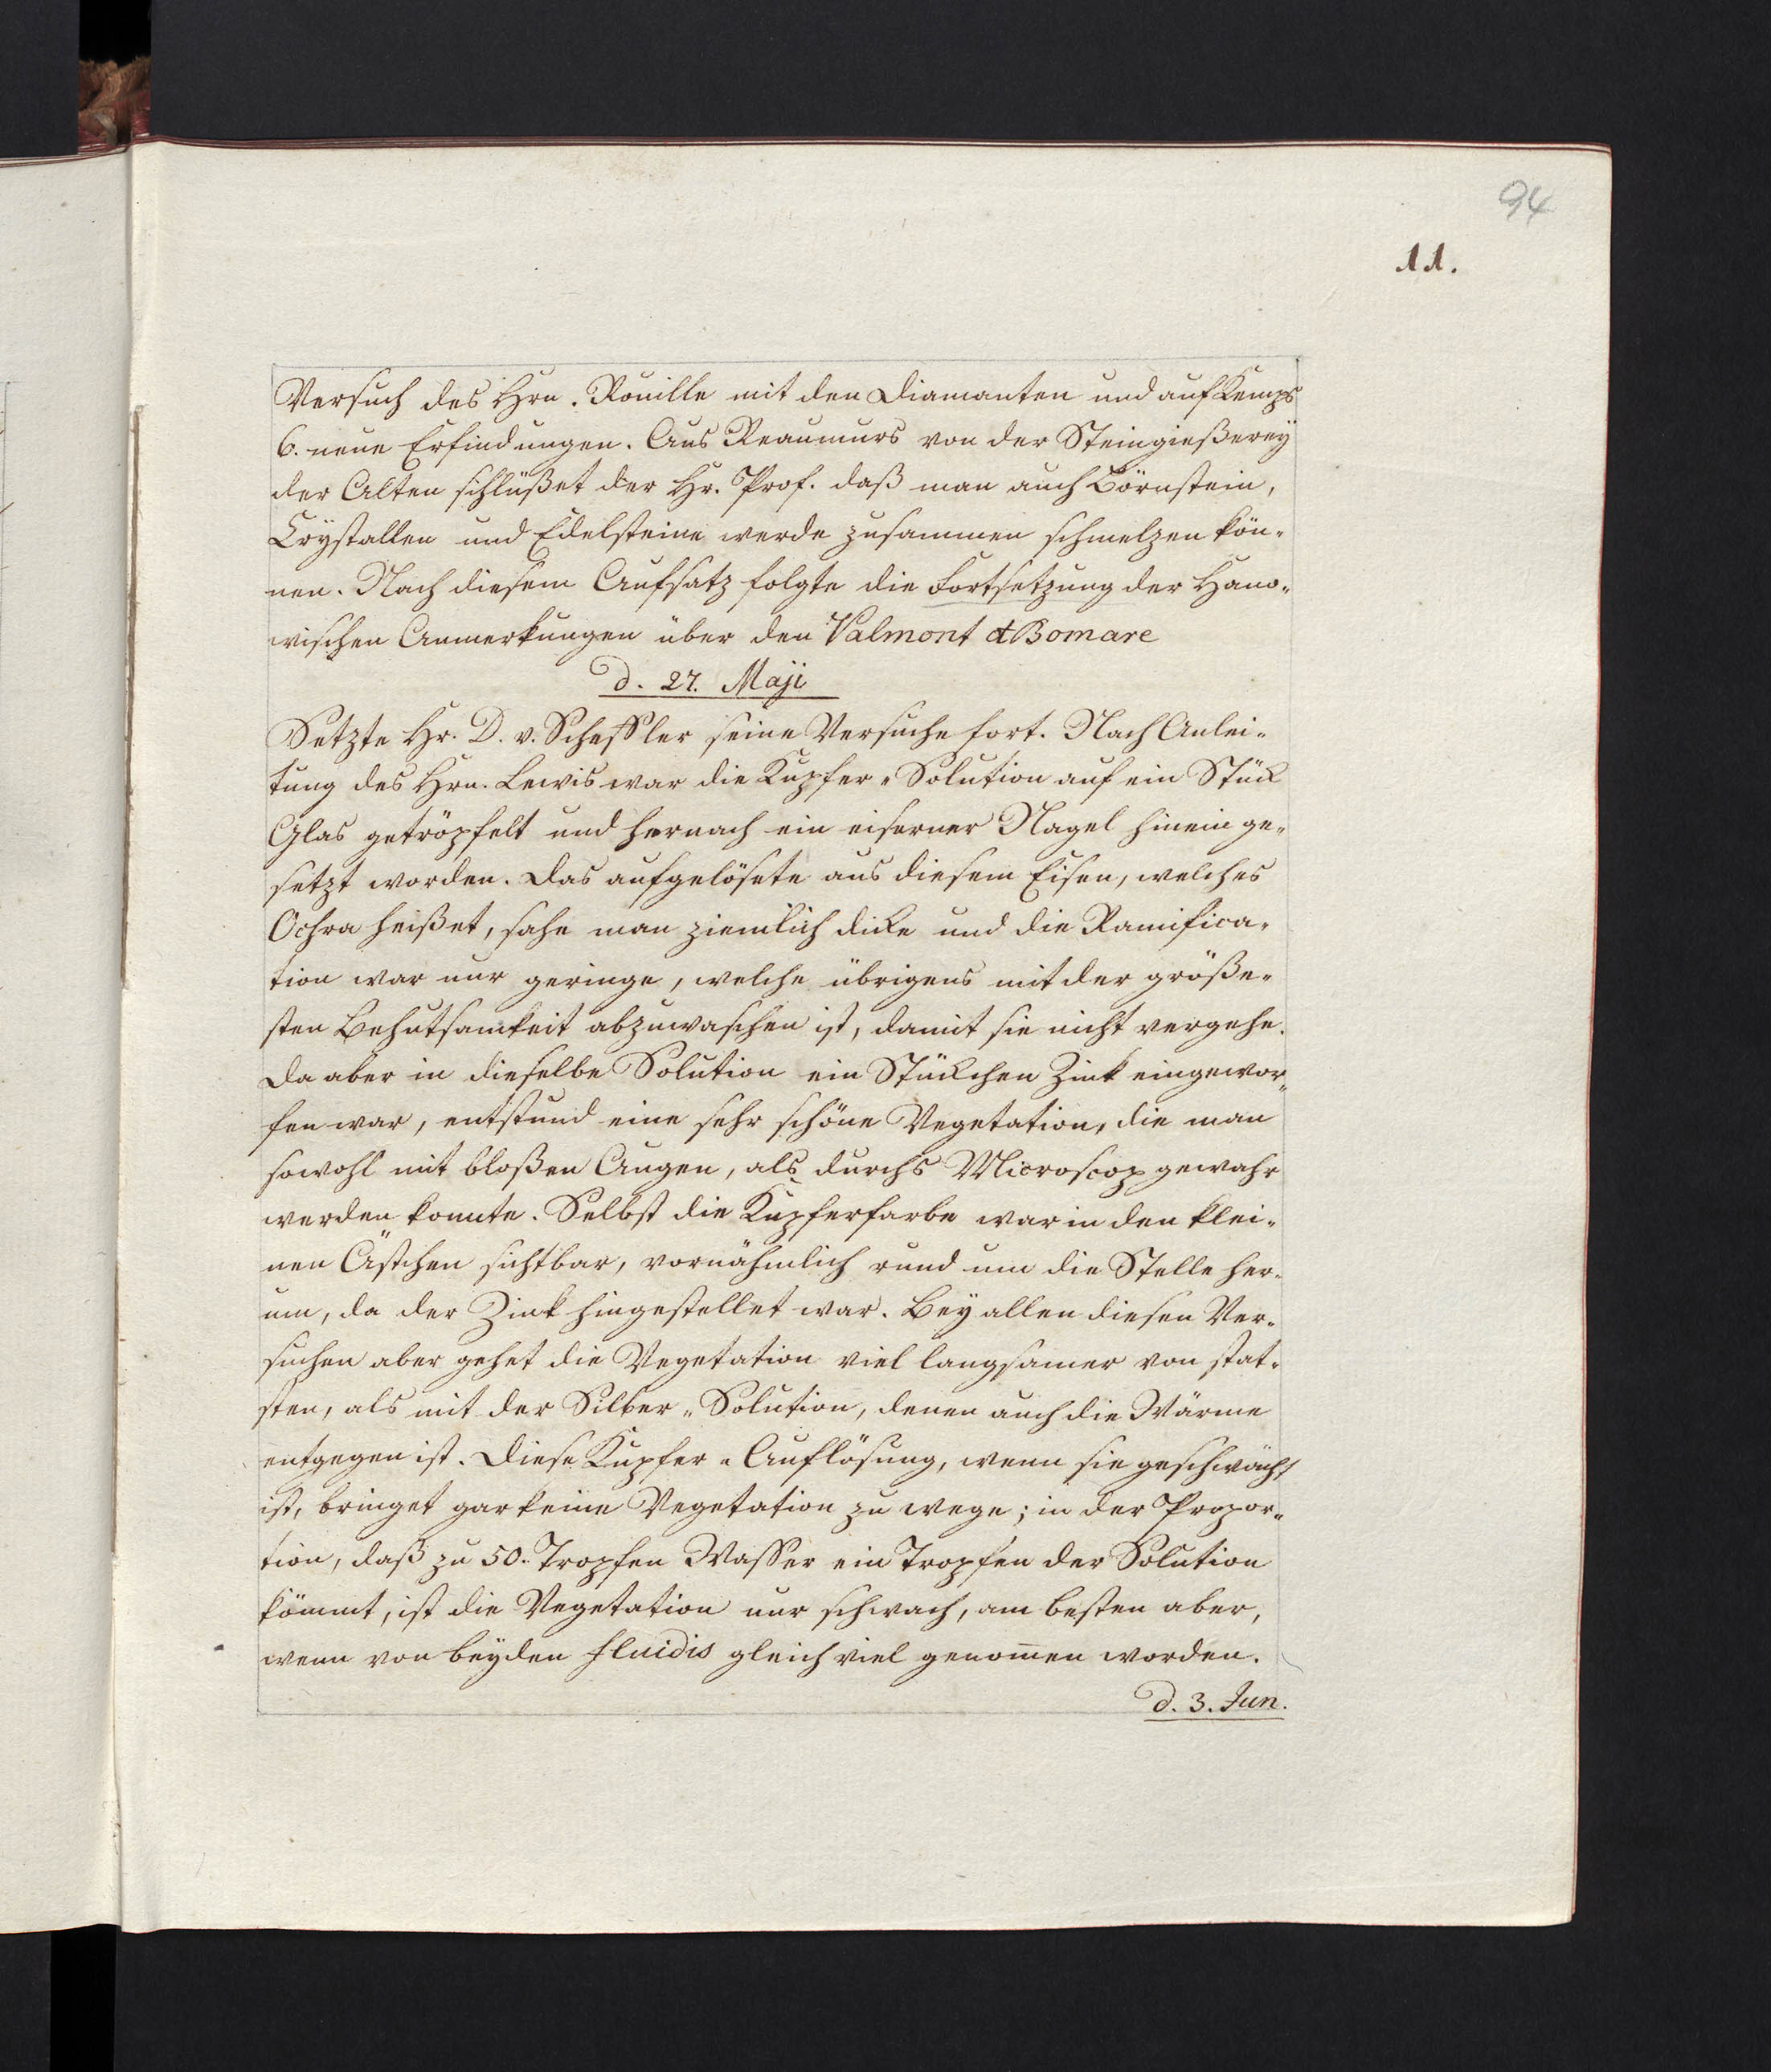 94
11.
Versuch des Hrn. Rouille mit den Diamanten und auf Kemps
6. neue Erfindungen. Aus Reaumurs von der Steingießereÿ
der Alten schlüßet der Hr. Prof. daß man auch Börnstein,
Crÿstallen und Edelsteine werde zusammen schmelzen kön-
nen. Nach diesem Aufsatz folgte die Fortsetzung der Hano-
wischen Anmerkungen über den Valmont d Bomare
d. 27. Maji
Setzte Hr. D. v. Scheffler seine Versuche fort. Nach Anlei-
tung des Hrn. Lewis war die Kupfer-Solution auf ein Stück
Glas getröpfelt und hernach ein eiserner Nagel hinein ge-
setzt worden. Das aufgelösete aus diesem Eisen, welches
Ochra heißet, sahe man ziemlich dicke und die Ramifica-
tion war nur geringe, welche übrigens mit der größe-
sten Behutsamkeit abzuwaschen ist, damit sie nicht vergehe.
Da aber in dieselbe Solution ein Stückchen Zink eingewor-
fen war, entstund eine sehr schöne Vegetation, die man
sowohl mit bloßen Augen, als durchs Microscop gewahr
werden konnte. Selbst die Kupferfarbe war in den klei-
nen Ästchen sichtbar, vornähmlich rund um die Stelle her-
um, da der Zink hingestellet war. Beÿ allen diesen Ver-
suchen aber gehet die Vegetation viel langsamer von stat-
sten, als mit der Silber-Solution, denen auch die Wärme
entgegen ist. Diese Kupfer-Auflösung, wenn sie geschwächt
ist, bringet gar keine Vegetation zu wege; in der Propor-
tion, daß zu 50. Tropfen Wasser ein Tropfen der Solution
kömmt, ist die Vegetation nur schwach, am besten aber,
wenn von beÿden fluidis gleich viel genom̅en worden.
d. 3. Jun.